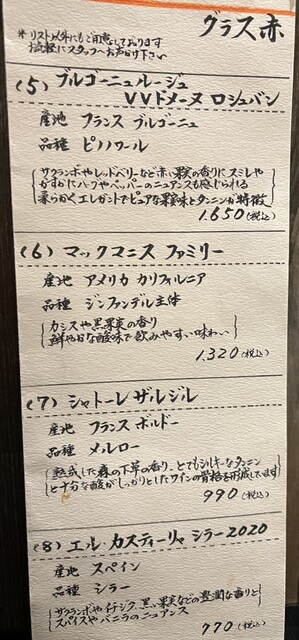 グラス赤
* リスト以外にもご用意しております
お気軽にスタッフへお声かけ下さい
(5) ブルゴーニュルージュ
VVドメーヌ ロシュバン
産地 フランス ブルゴーニュ
品種 ピノノワール
サクランボやレッドベリーなど赤い果実の香りにスミレや
かすかにハーブやペッパーのニュアンスも感じられる
柔らかくエレガントでピュアな果実味とタンニンが特徴
1.650(税込)
(6) マックマニス ファミリー
産地 アメリカ カリフォルニア
品種 ジンファンデル主体
カシスや黒果実の香り
鮮やかな酸味で飲みやすい味わい
1.320(税込)
(7) シャトーレ ザルジル
産地 フランス ボルドー
品種 メルロー
熟成した森の下草の香り、とてもシルキーなタンニン
と十分な酸がしっかりとしたワインの骨格を形成しています
990(税込)
(8) エル・カスティーリャ シラー2020
産地 スペイン
品種 シラー
サクランボやイチジク、黒い果実などの豊潤な香りと
スパイスやバニラのニュアンス
770(税込)